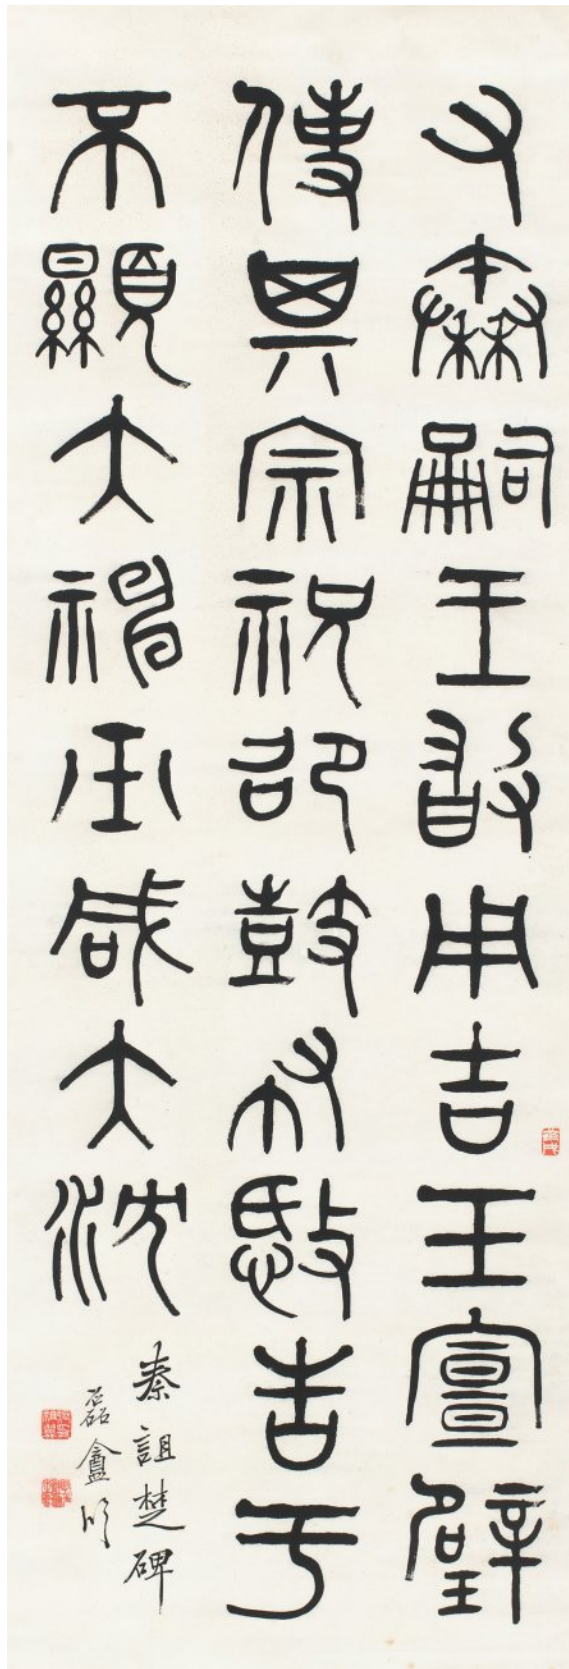 又秦嗣王敢用吉玉宣璧
使其宗祝邵鼓布愍告于
不顯大神巫咸大沈
秦詛楚碑
磊盦